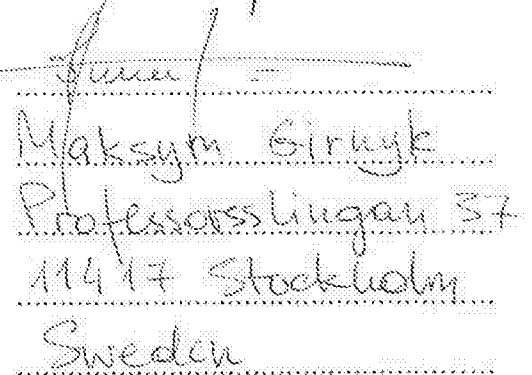 Maksym Girnyk
Professorsslingan 37
114 17 Stockholm
Sweden